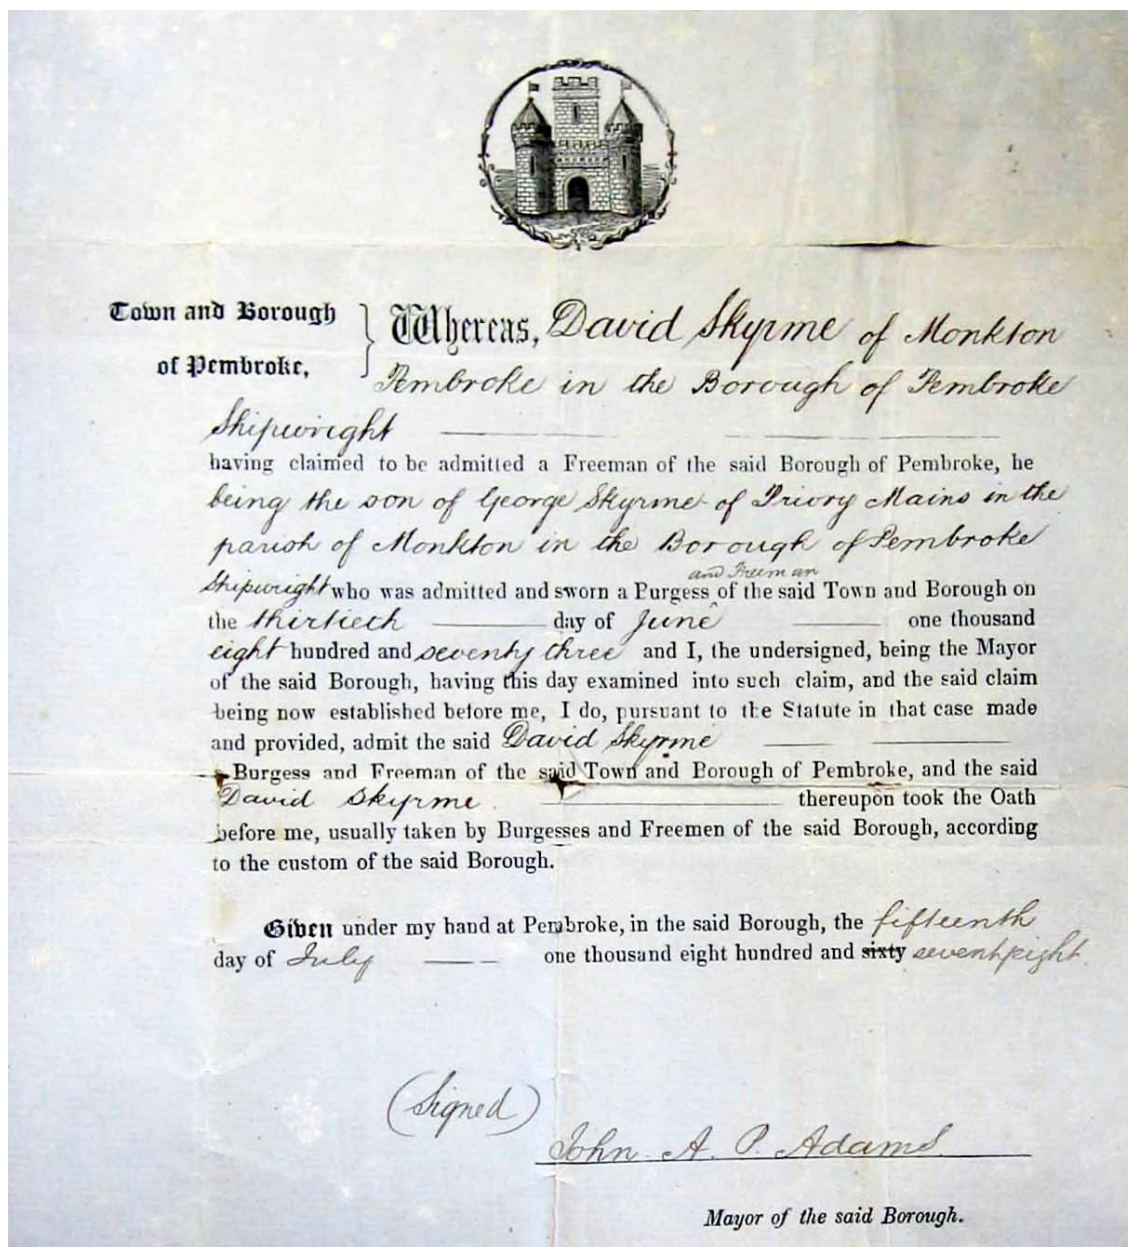 Town and Borough
of Pembroke,
Whereas, David Skyrme of Monkton
Pembroke in the Borough of Pembroke
Shipwright
having claimed to be admitted a Freeman of the said Borough of Pembroke, he
being the son of George Skyrme of Priory Mains in the
parish of Monkton in the Borough of Pembroke
and Freeman
Shipwright who was admitted and sworn a Purgess of the said Town and Borough on
the thirtieth day of June one thousand
eight hundred and seventy three and I, the undersigned, being the Mayor
of the said Borough, having this day examined into such claim, and the said claim
being now established before me, I do, pursuant to the Statute in that case made
and provided, admit the said David Skyrme
Burgess and Freeman of the said Town and Borough of Pembroke, and the said
David Skyrme thereupon took the Oath
before me, usually taken by Burgesses and Freemen of the said Borough, according
to the custom of the said Borough.
Given under my hand at Pembroke, in the said Borough, the fifteenth
day of July one thousand eight hundred and sixty seventy eight
(Signed)
John A. P. Adams
Mayor of the said Borough.